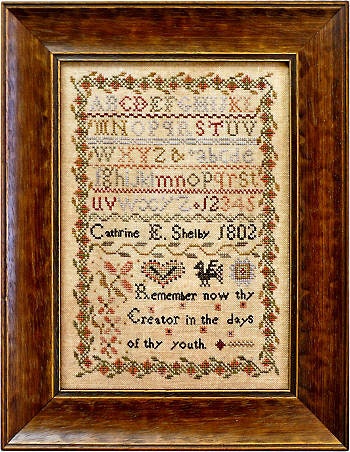 ABCDEFGHIJKL
MNOPQRSTUV
WXYZ&abcde
mnopqrst
uvwxyz 12345
Cathrine E. Shelby 1803
Remember now thy
Creator in the days
of thy youth